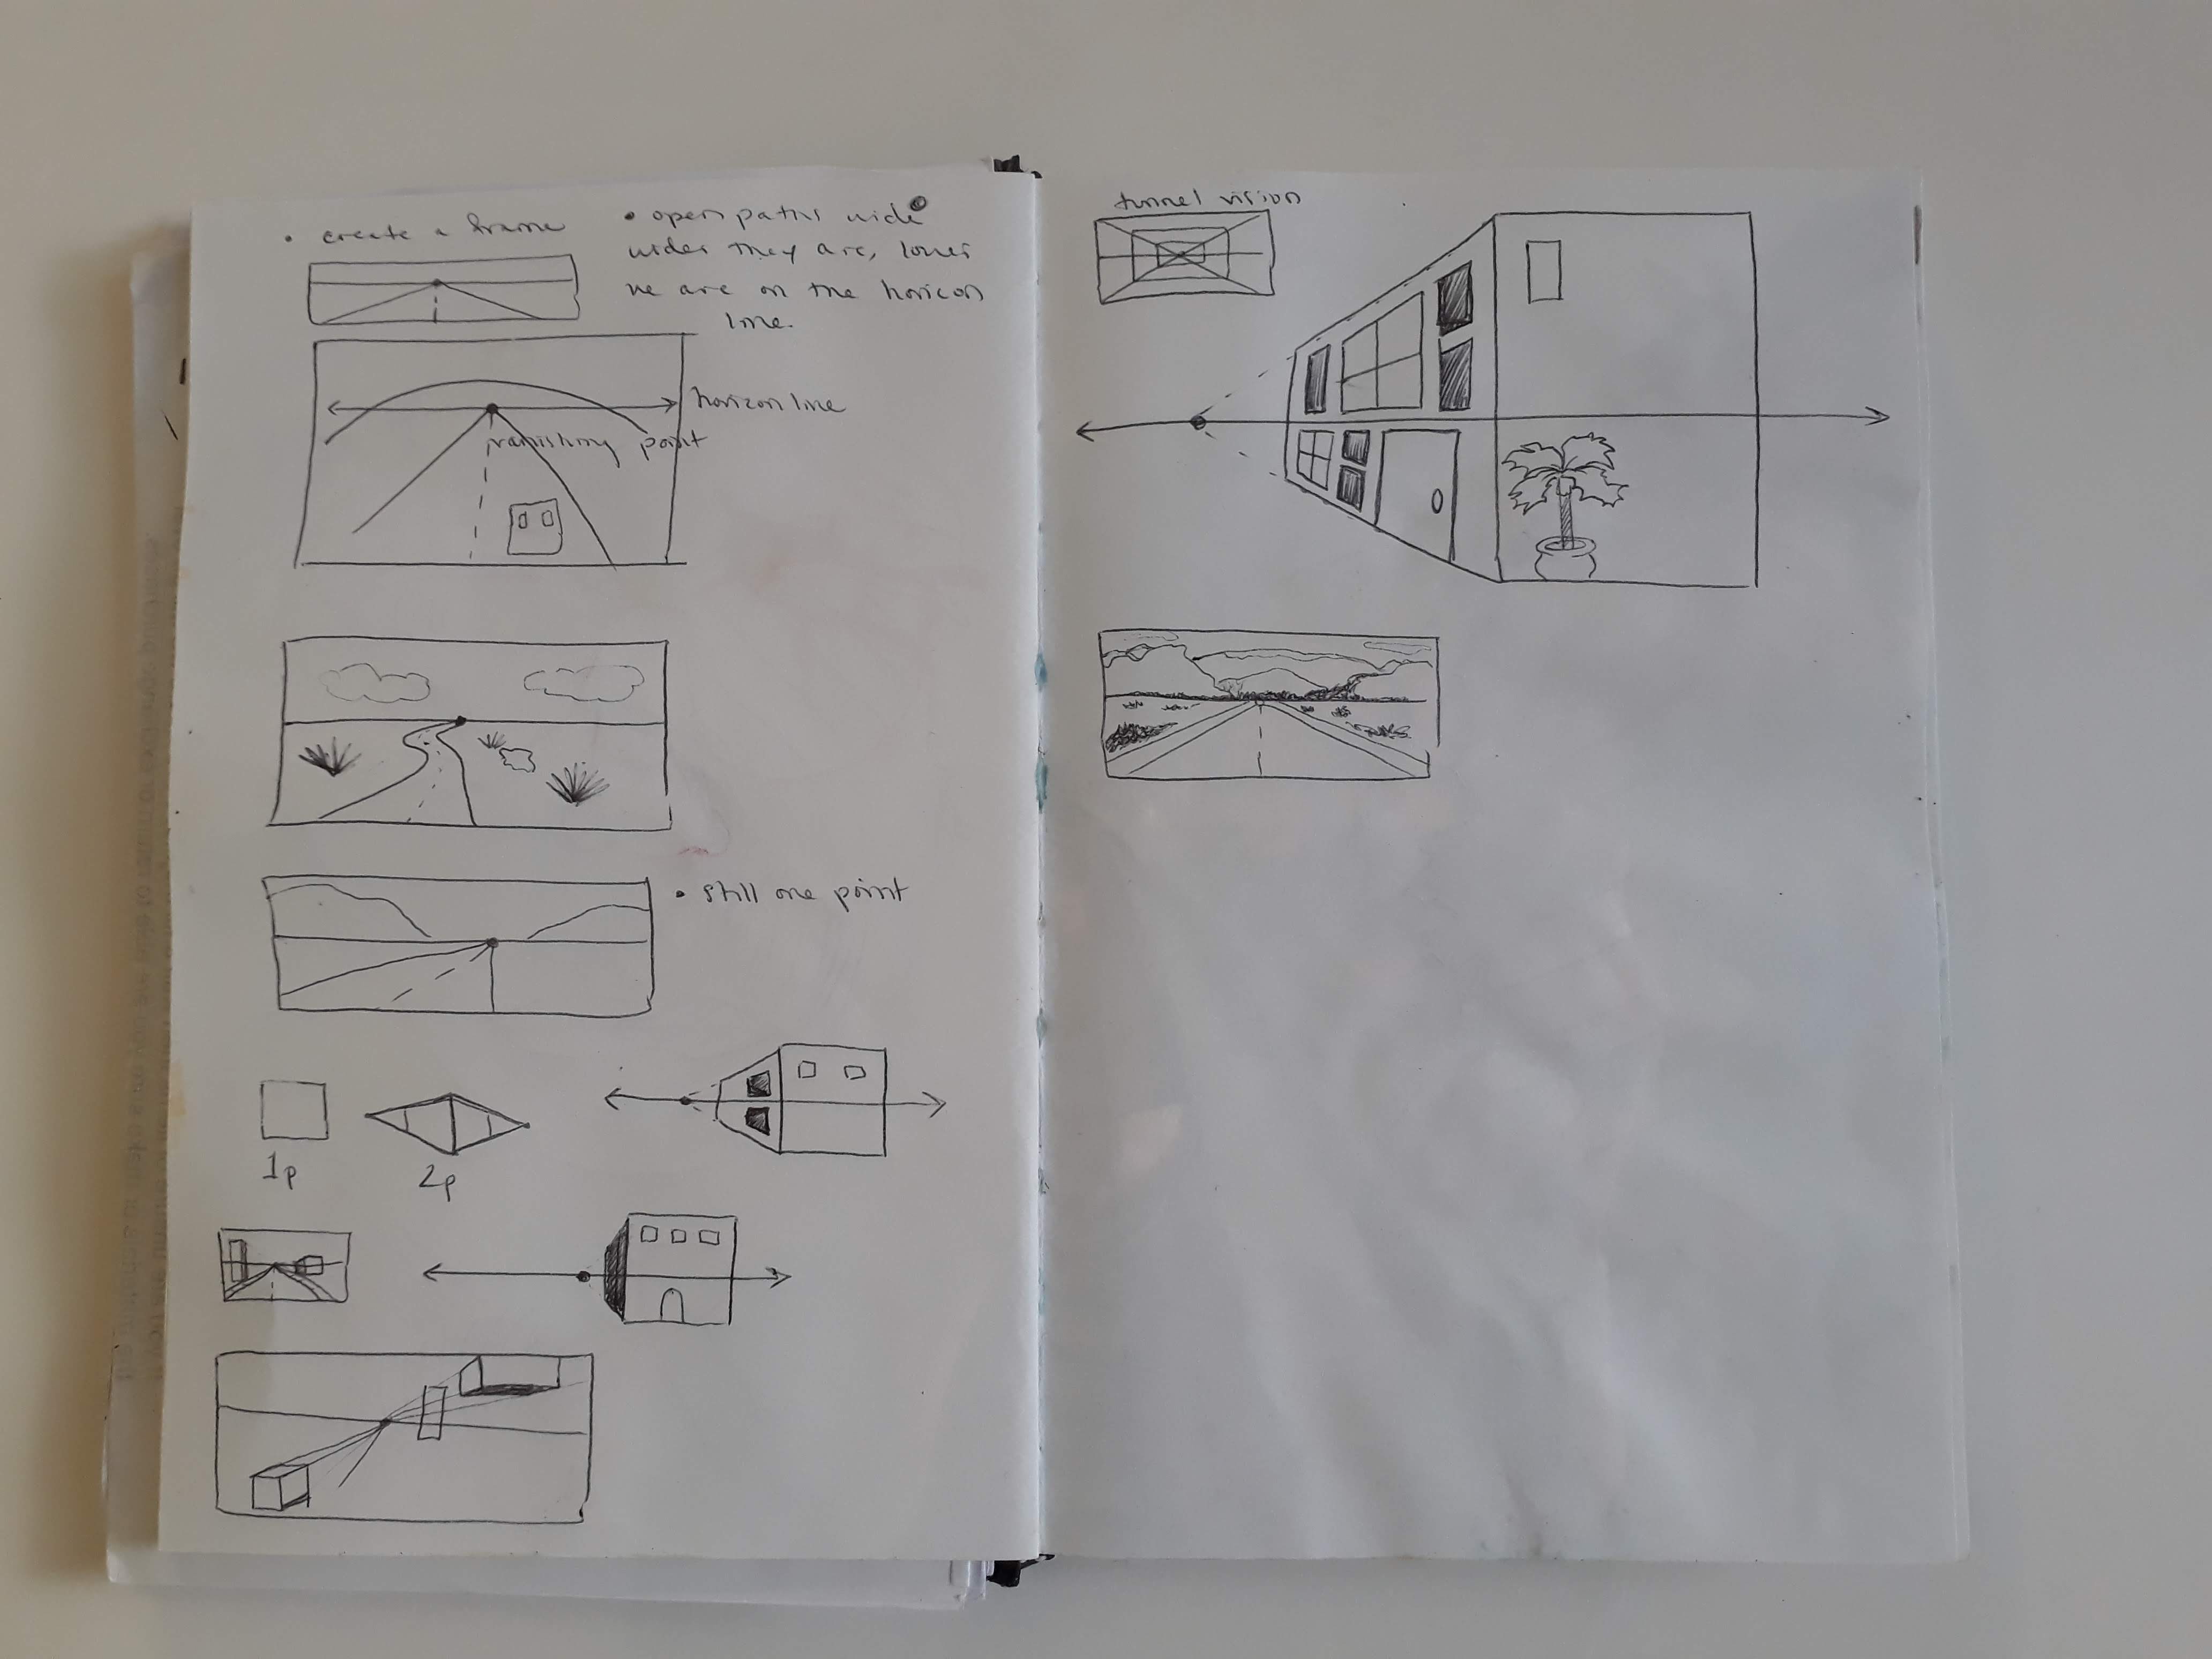 • create a frame
• open paths wide
wider they are, lower
we are on the horizon
line.
horizon line
vanishing point
• still one point
1p
2p
tunnel vision